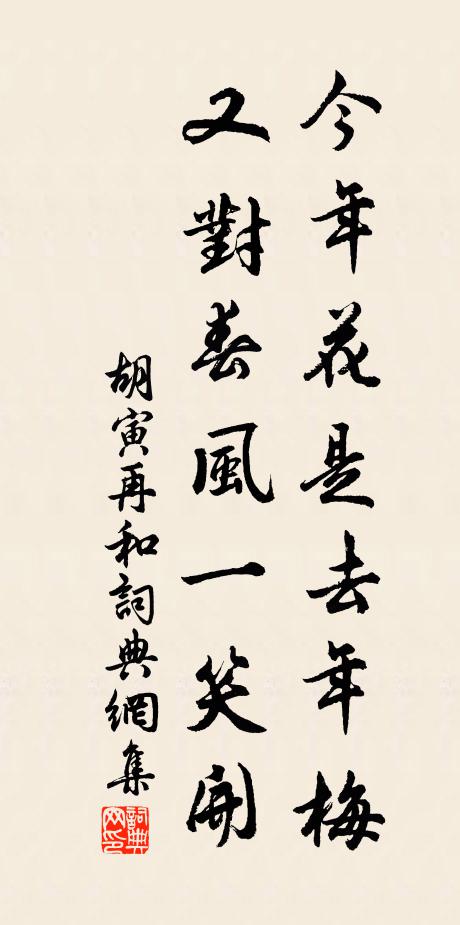 今年花是去年梅
又對春風一笑開
胡寅再和詞典網集
詞典網印